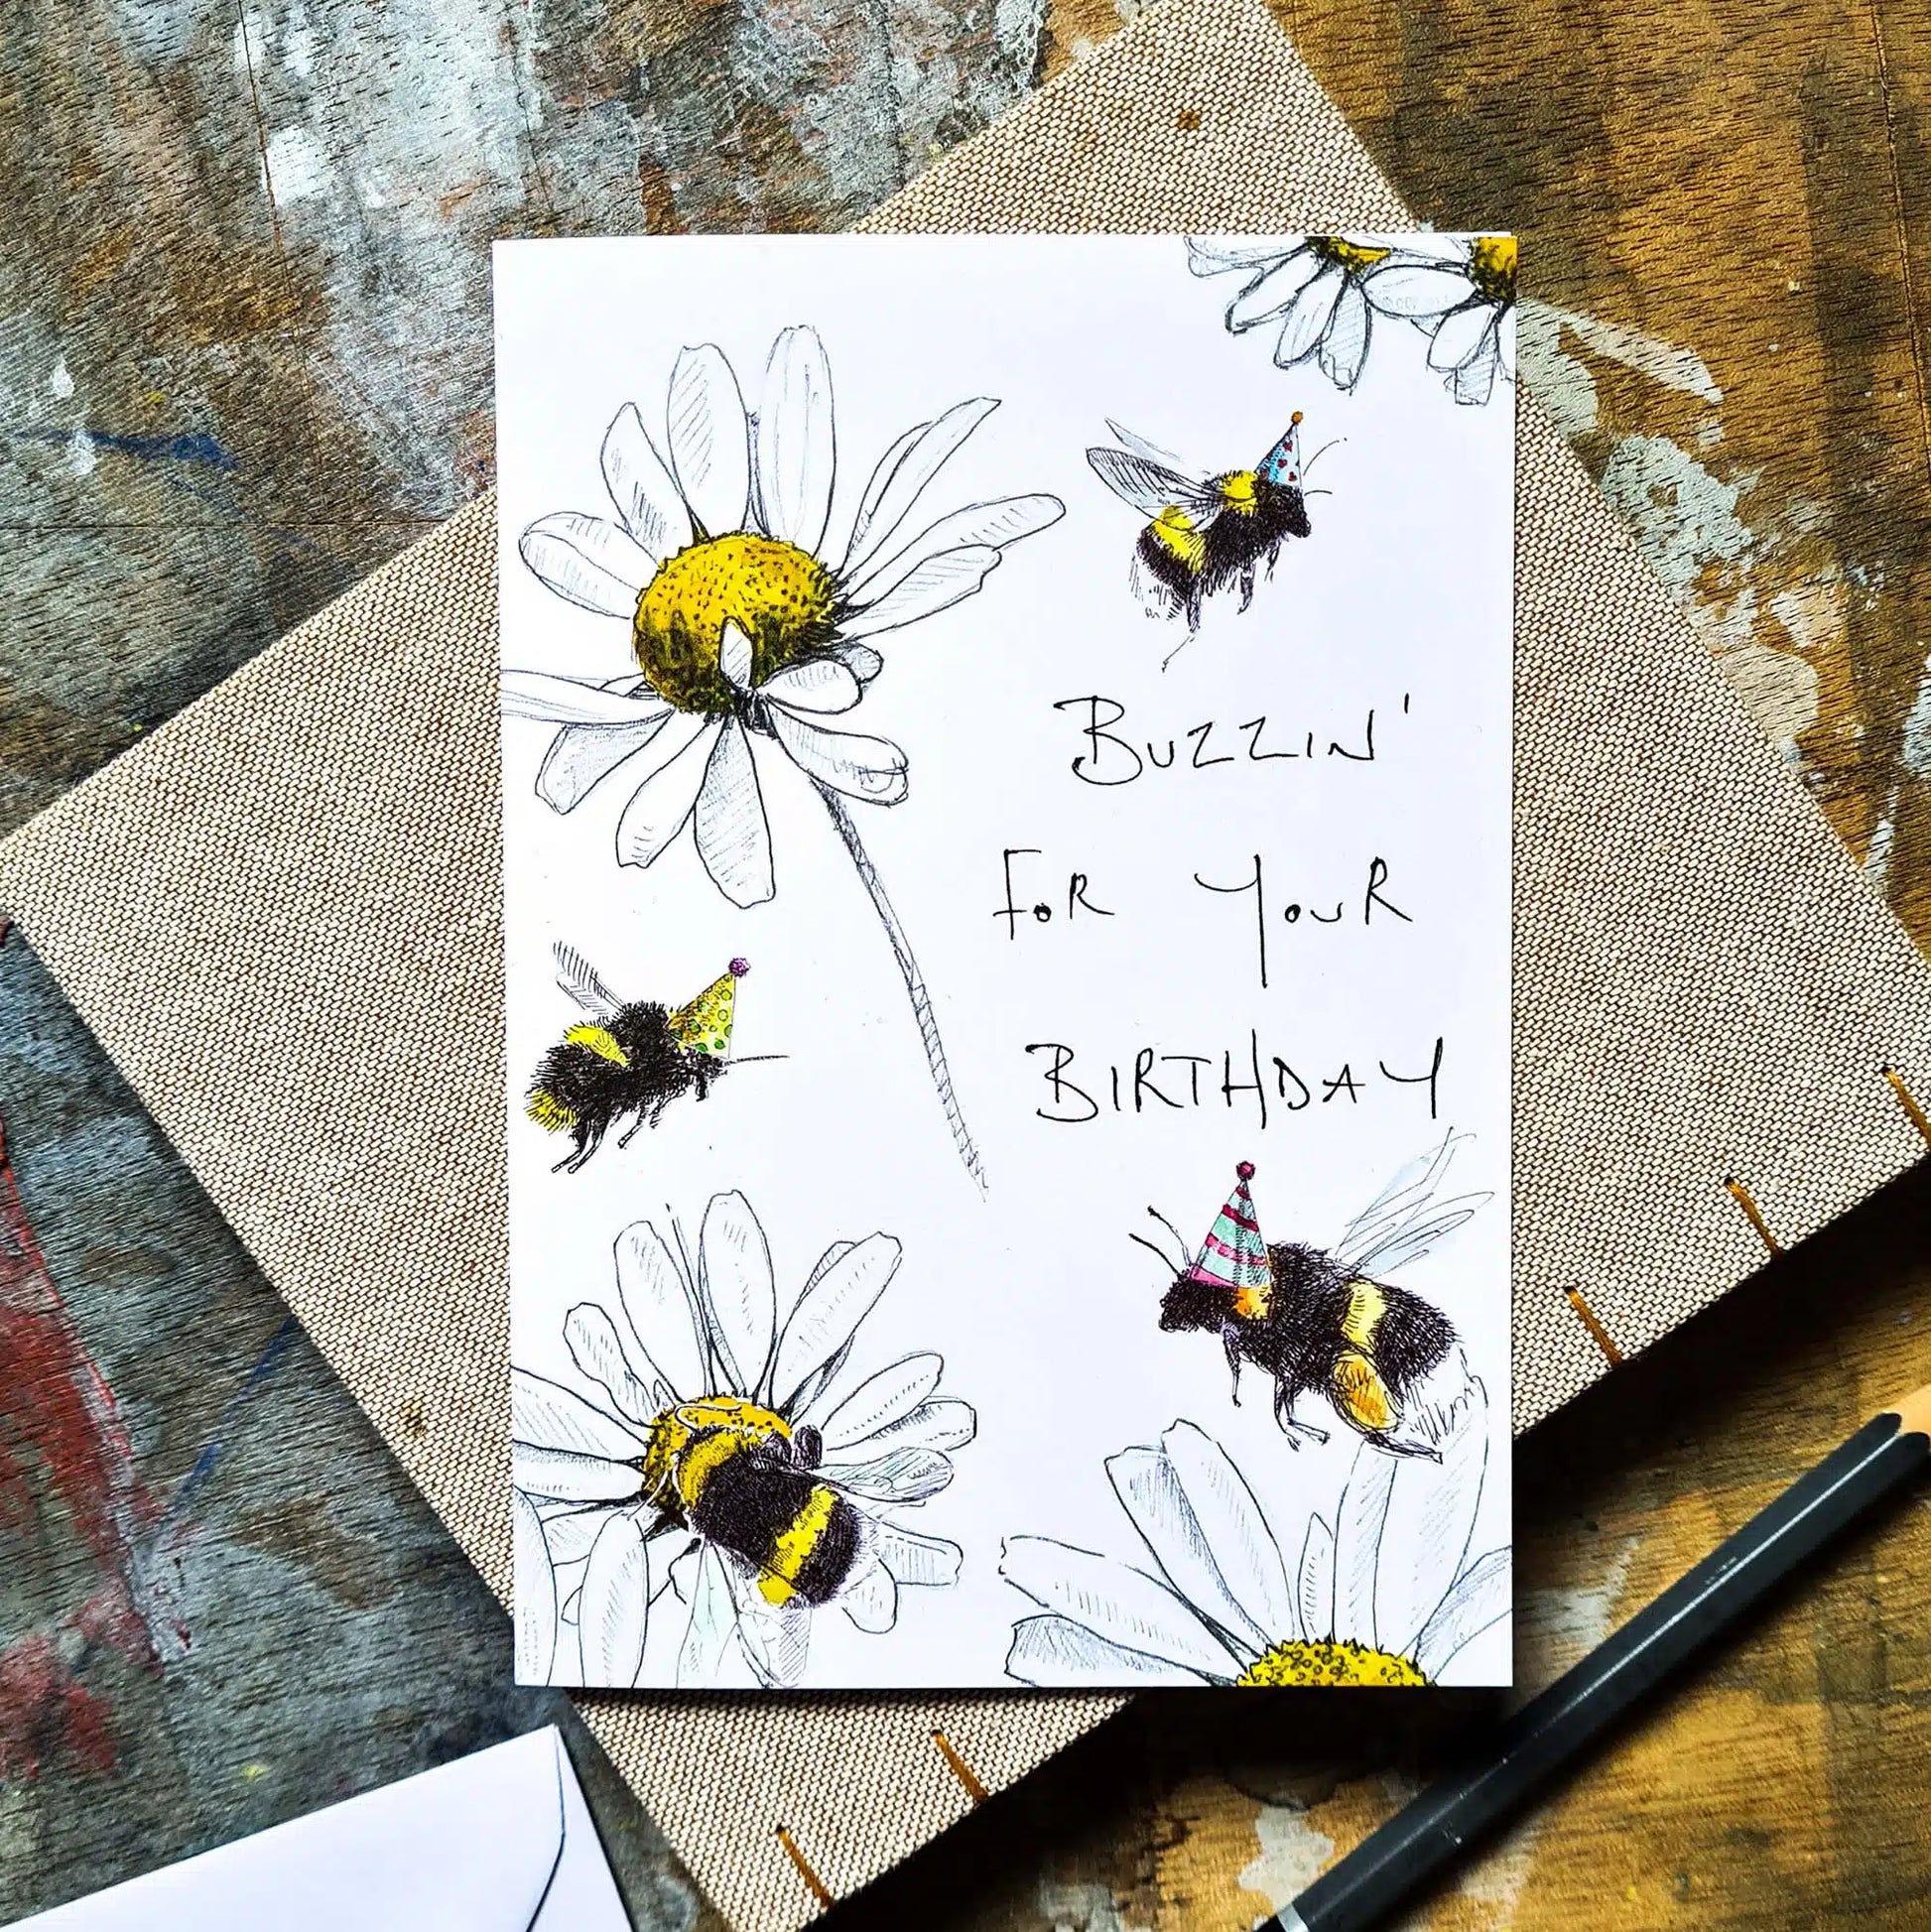 BUZZIN'
FOR YOUR
BIRTHDAY